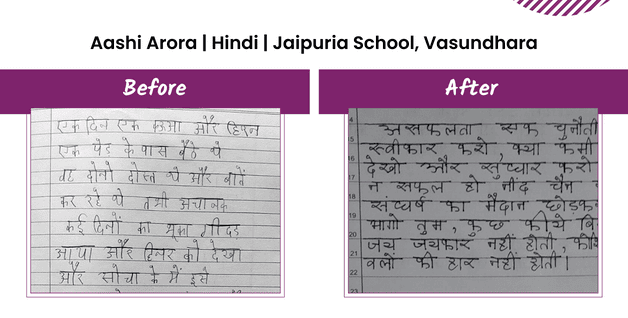 Aashi Arora | Hindi | Jaipuria School, Vasundhara
Before
एक दिन एक कऊआ और हिरन
एक पेड के पास बैठे थे
वह दोनो दोस्त थे और बातें
कर रहे थे तभी अचानक
कई दिनों का भूका गीदड
आया और हिनर को देखा
और सोचा के मैं इसे
After
असफलता एक चुनौती
स्वीकार करो, क्या कमी
देखो और सुधार करो
न सफल हो नींद चैन
संघर्ष का मैदान छोडक
भागो तुम, कुछ कीये बि
जय जयकार नहीं होती, कोशि
वालों की हार नहीं होती।